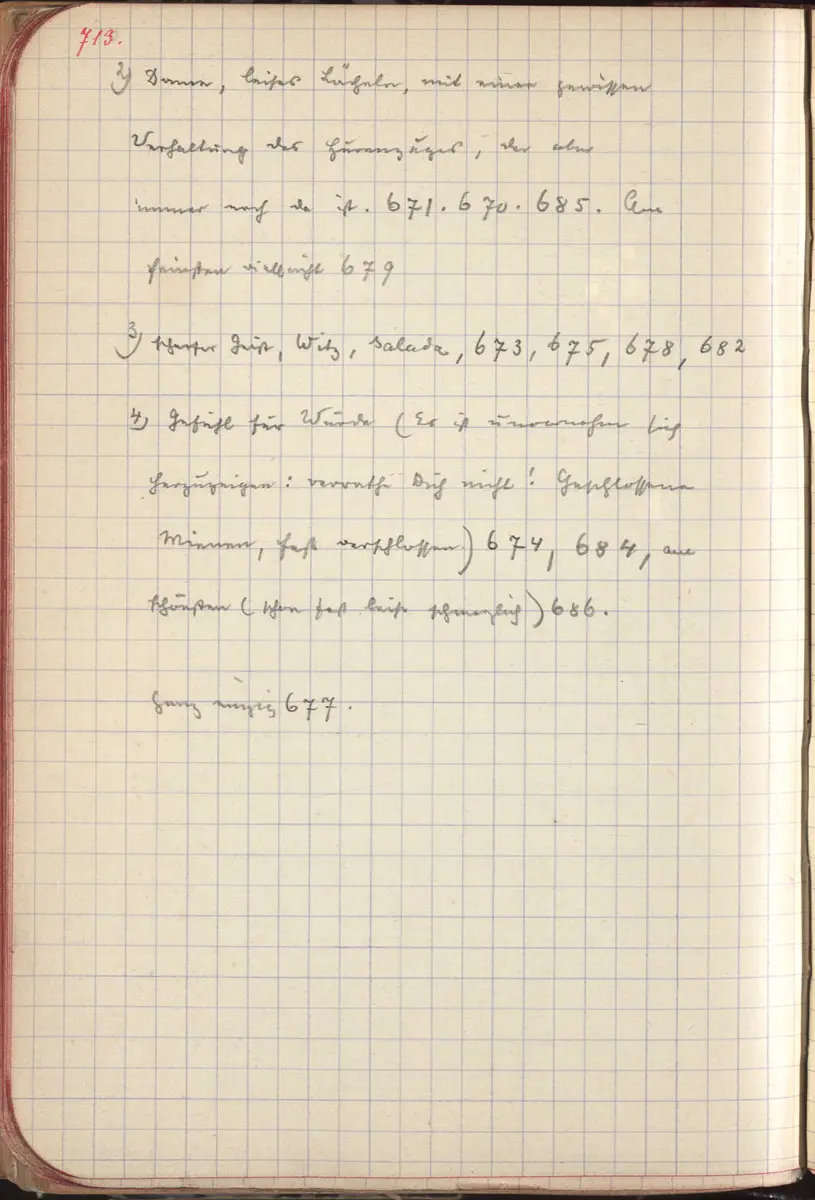 713.
2) Dame, leises Lächeln, mit einer gewissen
Verhaltung des Hurenzuges, der aber
immer noch da ist. 671. 670. 685. Am
feinsten vielleicht 679
3) scharfer Geist, Witz, Salada, 673, 675, 678, 682
4) Gefühl für Würde (Es ist unvornehm sich
herzuzeigen: verrathe Dich nicht! Geschlossene
Mienen, fest verschlossen) 674, 684, am
schönsten (schon fast leise schmerzlich) 686.
Ganz einzig 677.